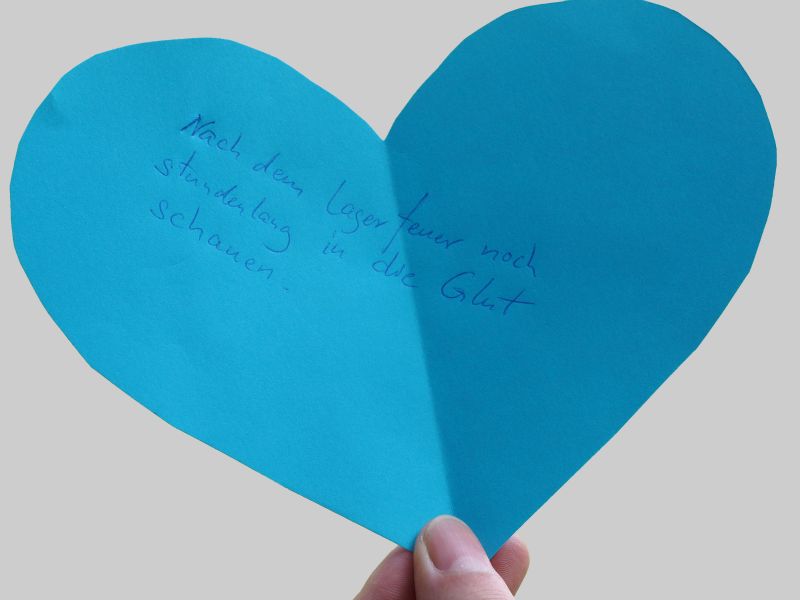 Nach dem Lagerfeuer noch
stundenlang in die Glut
schauen.